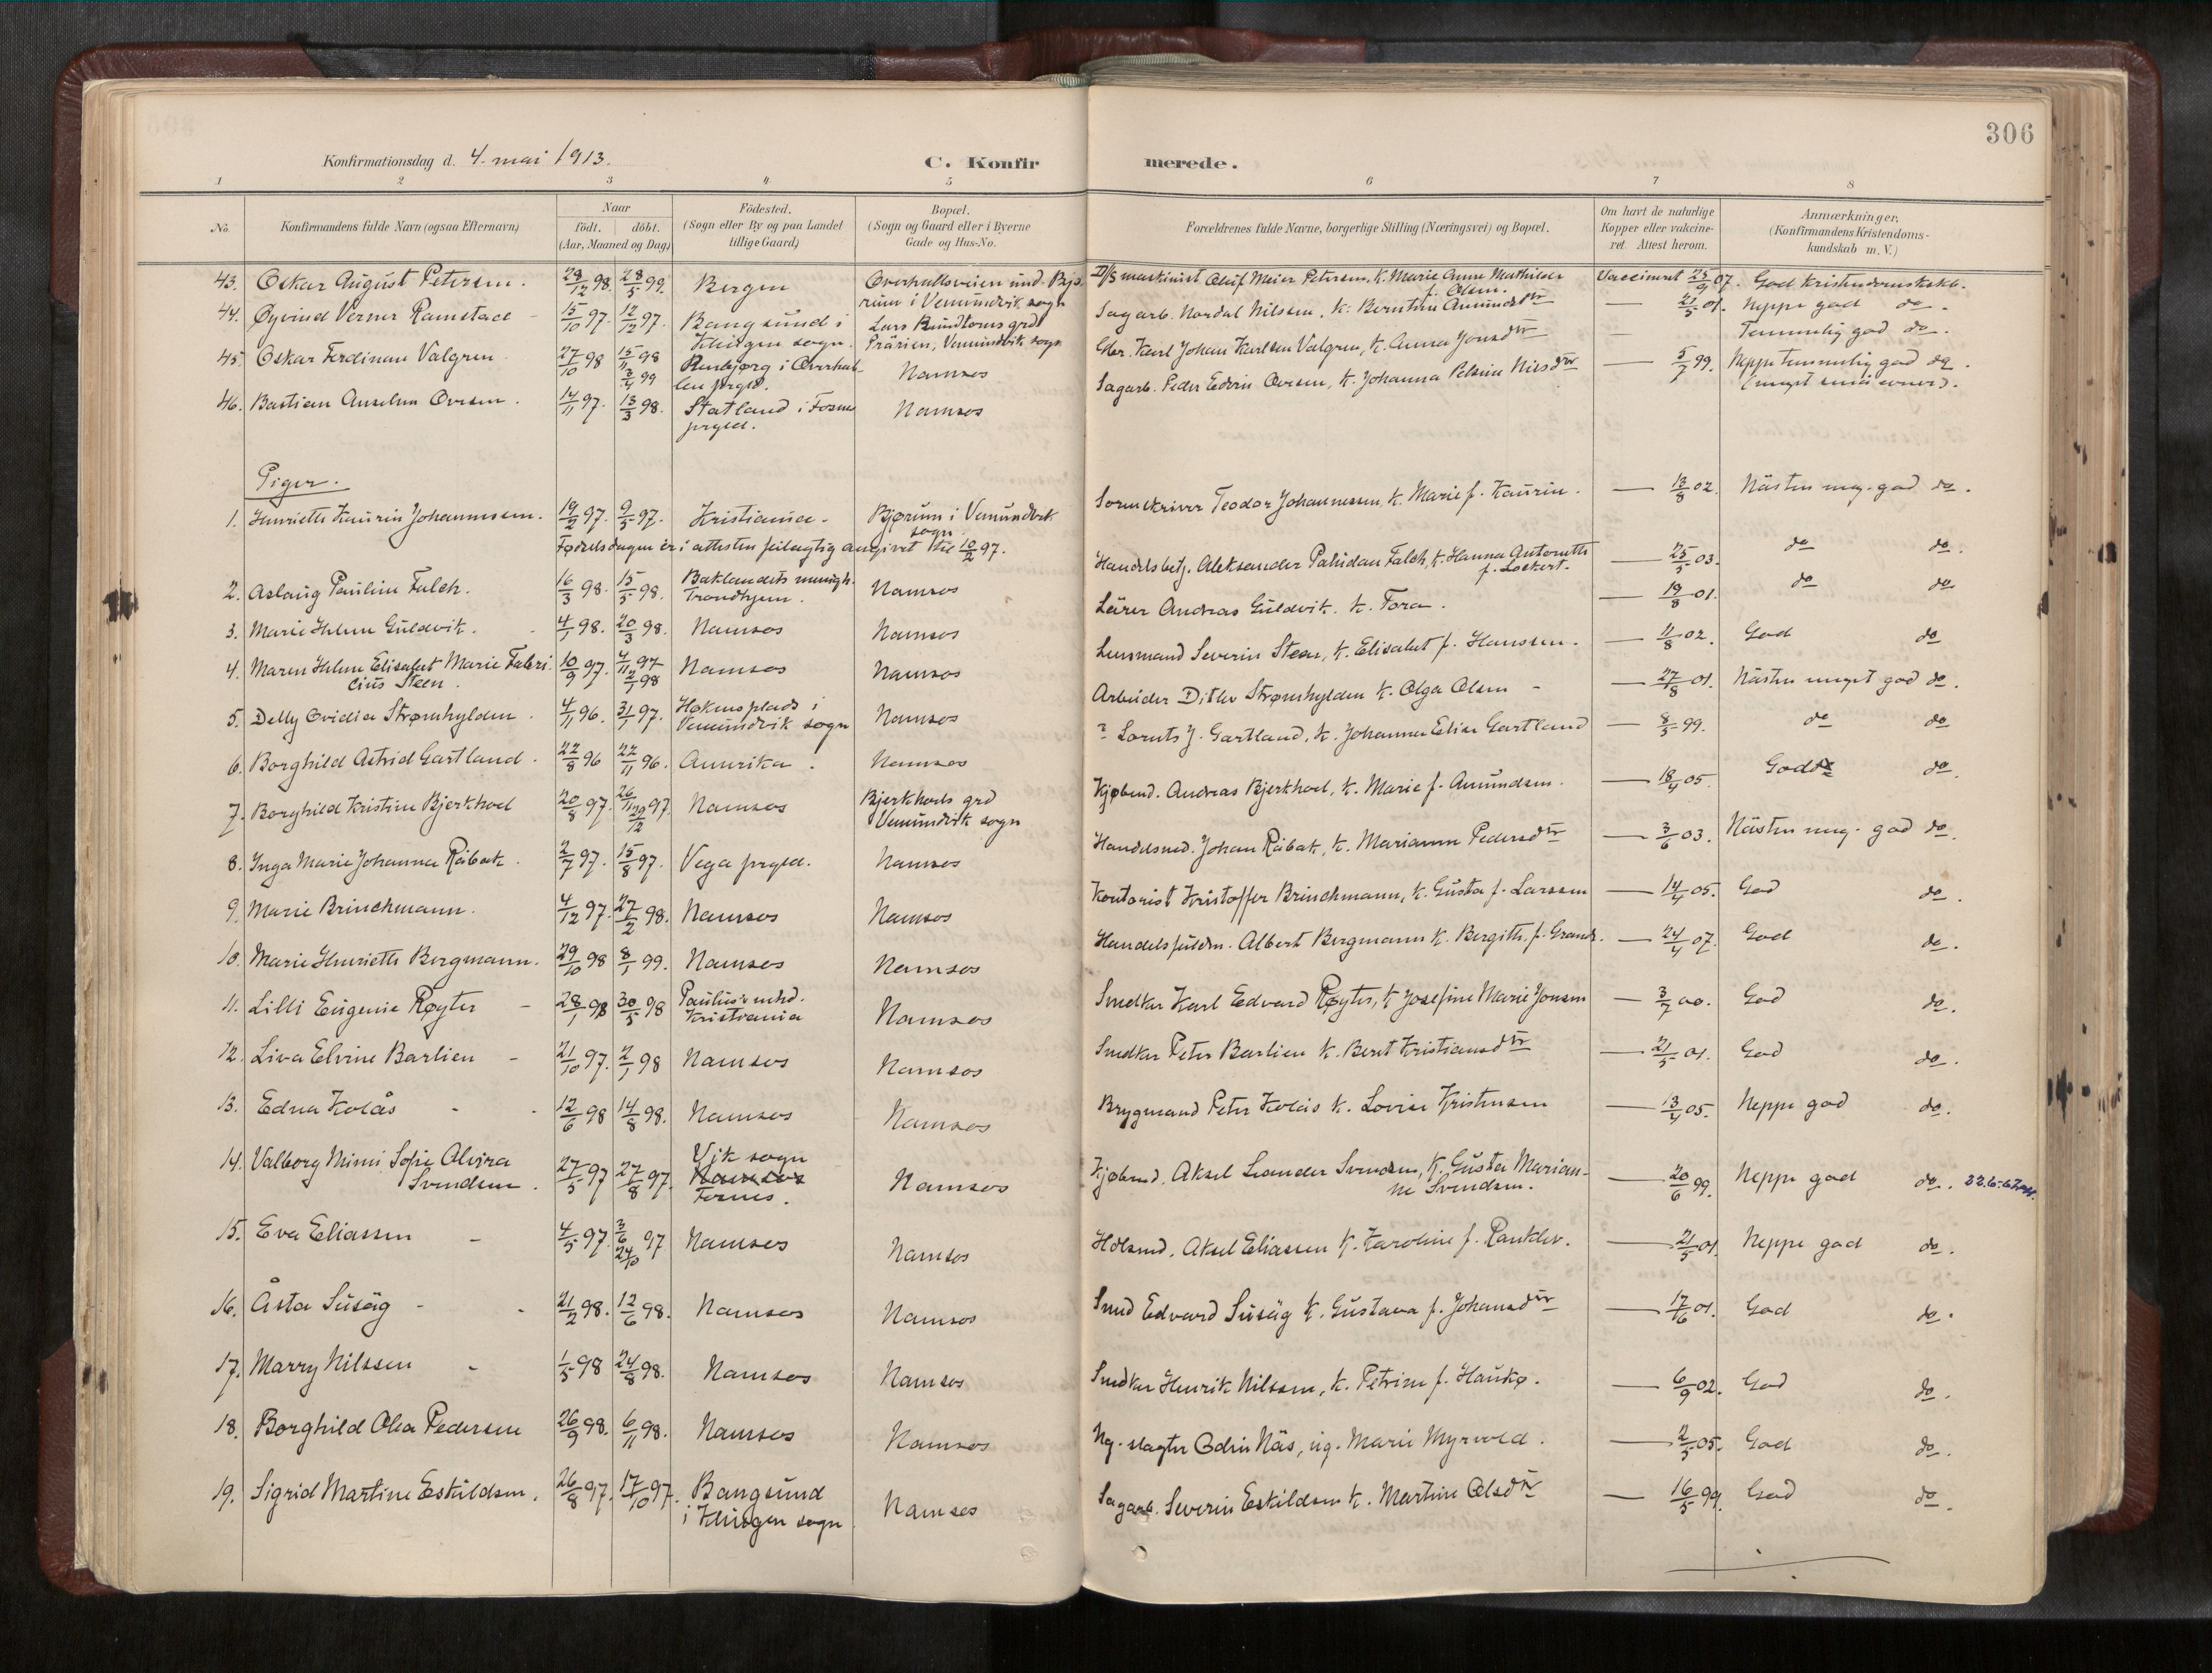 306
Konfirmationsdag d. 4. mai 1913.
C. Konfir merede.
1 2 3 4 5 6 7 8
No. Konfirmandens fulde Navn (ogsaa Efternavn) Naar født. døbt. (Aar, Maaned og Dag) Födested. (Sogn eller By og paa Landet tillige Gaard) Bopæl. (Sogn og Gaard eller i Byerne Gade og Hus-No. Forældrenes fulde Navne, borgerlige Stilling (Næringsvei) og Bopæl. Om havt de naturlige Kopper eller vakcineret. Attest herom. Anmærkninger. (Konfirmandens Kristendomskundskab m. V.)
43. Oskar August Petersen. 28/12 98. 28/5 99. Bergen Overhallsveien und. Bjørum i Vemundvik sogn D/S maskinist Oluf Meier Petersen, k. Marie Anna Mathilde f. Olsen. Vaccineret 25/9 07. God kristendomskskb.
44. Øyvind Verner Ramstad 15/10 97. 12/12 97. Bangsund i Klingen sogn. Lars grd Prärien, Vemundvik sogn Sagarb. Nordal Nilssen, k. Berntine Amundsdtr — 21/5 01. Neppe god do.
45. Oskar Ferdinan Valgren 27/10 98 15/11 98 3/4 99 Renbjørg i Overhallen prgld. Namsos Gbr. Karl Johan Karlsen Valgren, k. Anna Jonsdtr — Temmelig god do.
46. Bastian Anselm Ovesen. 14/11 97. 13/3 98. Statland i Fosnes prgld. Namsos Sagarb. Peder Edvin Ovesen, k. Johanna Nilsdtr — 5/7 99. Neppe temmelig god do. (meget små evner).
Piger.
1. Henriette Kaurin Johannessen. 19/2 97. 9/5 97. Kristiania. Bjørum i Vemundvik sogn Sorenskriver Teodor Johannessen, k. Marie f. Kaurin. — 13/8 02. Nästen meg. god do.
Fødselsdagen er i attesten feilagtig angivet til 10/2 97.
2. Aslaug Pauline Falch. 16/3 98. 15/5 98. Baklandets menigh. Trondhjem. Namsos Handelsbetj. Aleksander Falch, k. Hanna Antonette f. Lockert. — 25/5 03. do do.
3. Marie Helene Guldvik. 4/1 98. 20/3 98. Namsos Namsos Lärer Andreas Guldvik. k. Tora. — 19/8 01. do do
4. Maren Helene Elisabet Marie Fabricius Steen. 10/9 97. 4/11 97 2/1 98 Namsos Namsos Lensmand Severin Steen, k. Elisabet f. Hanssen. — 11/8 02. God do
5. Delly Ovidia Strømhylden. 4/11 96. 31/1 97. Høknesplads i Vemundvik sogn Namsos Arbeider Ditlev Strømhylden k. Olga Olsen — 27/8 01. Nästen meget god do.
6. Borghild Astrid Gartland. 22/8 96 22/11 96. Amerika. Namsos ? Lorents J. Gartland, k. Johanna Elise Gartland — 8/5 99. do do
7. Borghild Kristine Bjerkhoel 20/8 97. 26/11 97. 29/12 Namsos Bjerkhoels grd Vemundvik sogn Kjøbmd. Andreas Bjerkhoel, k. Marie f. Amundsen. — 18/4 05. God do.
8. Inga Marie Johanna Råbak. 2/7 97. 15/8 97. Vega prgld. Namsos Handelsmd. Johan Råbak, k. Marianne Pedersdtr — 3/6 03. Nästen meg. god do.
9. Marie Brinchmann. 4/12 97. 27/2 98. Namsos Namsos Kontorist Kristoffer Brinchmann, k. Gusta f. Larssen — 14/4 05. God do.
10. Marie Henriette Bergmann. 29/10 98 8/1 99. Namsos Namsos Handelsfuldm. Albert Bergmann k. Bergitte f. — 24/4 07. God do.
11. Lilli Eugenie Røyter 28/1 98 30/5 98 Paulus mhd. Kristiania Namsos Snedker Karl Edvard Røyter, k. Josefine Marie Jonsen — 3/7 00. God do.
12. Liva Elvine Barlien 21/10 97. 2/1 98 Namsos Namsos Snedker Peter Barlien k. Berit Kristiansdtr — 21/5 01. God do.
13. Edna Kolås 12/6 98 14/8 98. Namsos Namsos Brygmand Peter Kolås k. Lovise Kristensen — 13/4 05. Neppe god do.
14. Valborg Mimi Sofie Alvira Svendsen. 27/5 97 27/8 97. Vik sogn Namsos Fosnes. Namsos Kjøbmd. Aksel Leander Svendsen, k. Gusta Marianne Svendsen. — 20/6 99. Neppe god do.
15. Eva Eliassen 4/5 97. 3/6 97 24/10 Namsos Namsos Aksel Eliassen k. Karoline f. Ranklev. — 21/5 01. Neppe god do.
16. Åsta Susäg 21/2 98. 12/6 98. Namsos Namsos Smed Edvard Susäg k. Gustava f. Johansdtr — 17/6 01. God do.
17. Marry Nilssen 1/5 98 24/8 98. Namsos Namsos Snedker Henrik Nilssen, k. Petrine f. Haukø. — 6/9 02. God do.
18. Borghild Olea Pedersen 26/9 98. 6/11 98. Namsos Namsos Ug. slagter Odin Näs, ug. Marie Myrvold. — 2/5 05. God do.
19. Sigrid Martine Eskildsen. 26/8 97. 17/10 97. Bangsund i Klingen sogn Namsos Sagarb. Severin Eskildsen k. Martine Olsdtr — 16/5 99. God do.